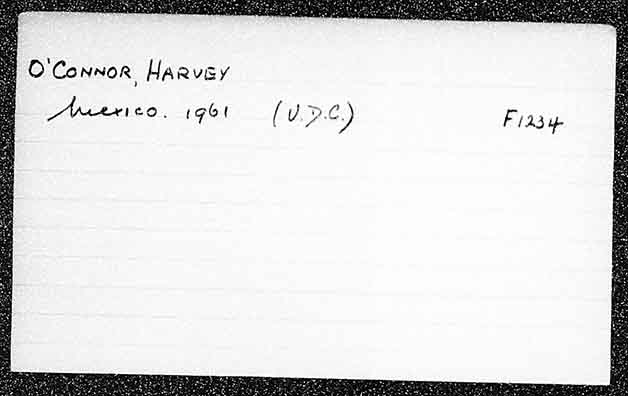 O'CONNOR, HARVEY
Mexico. 1961 (V.D.C.) F1234